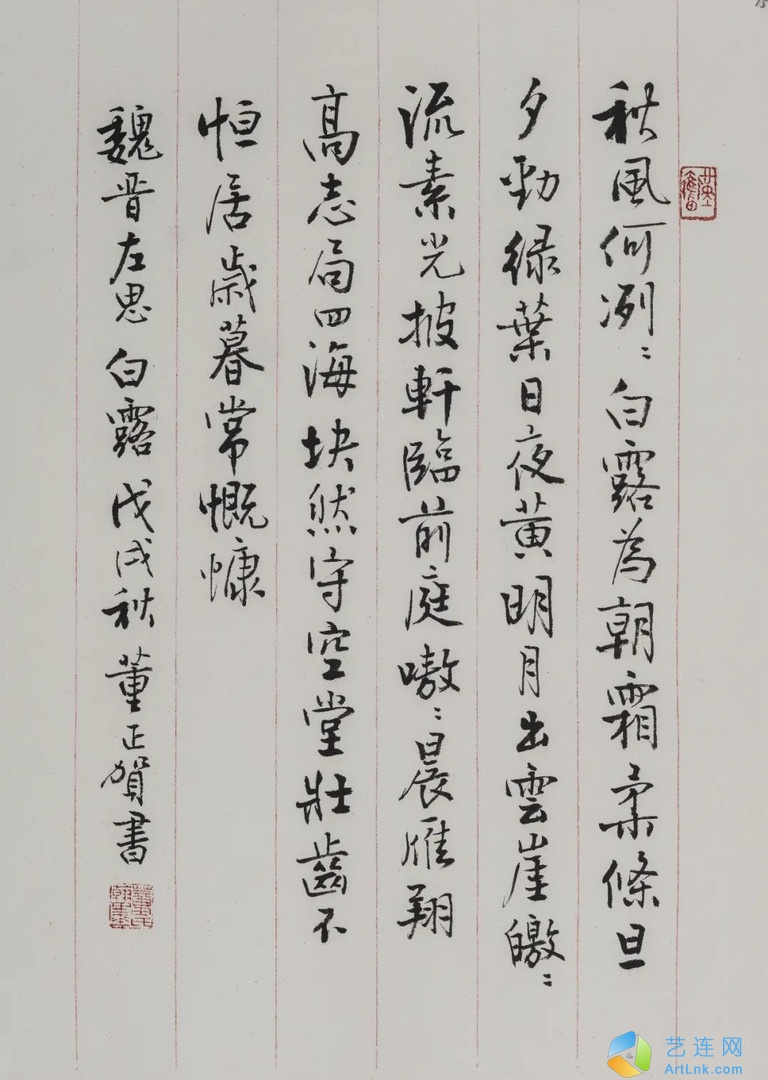 秋風何冽〻白露為朝霜柔條旦
夕勁緑葉日夜黄明月出雲崖皦〻
流素光披軒臨前庭嗷〻晨雁翔
高志局四海块然守空堂壯齒不
恒居歲暮常慨慷
魏晋左思 白露 戊戌秋 董正賀書
艺连网
ArtLnk.com